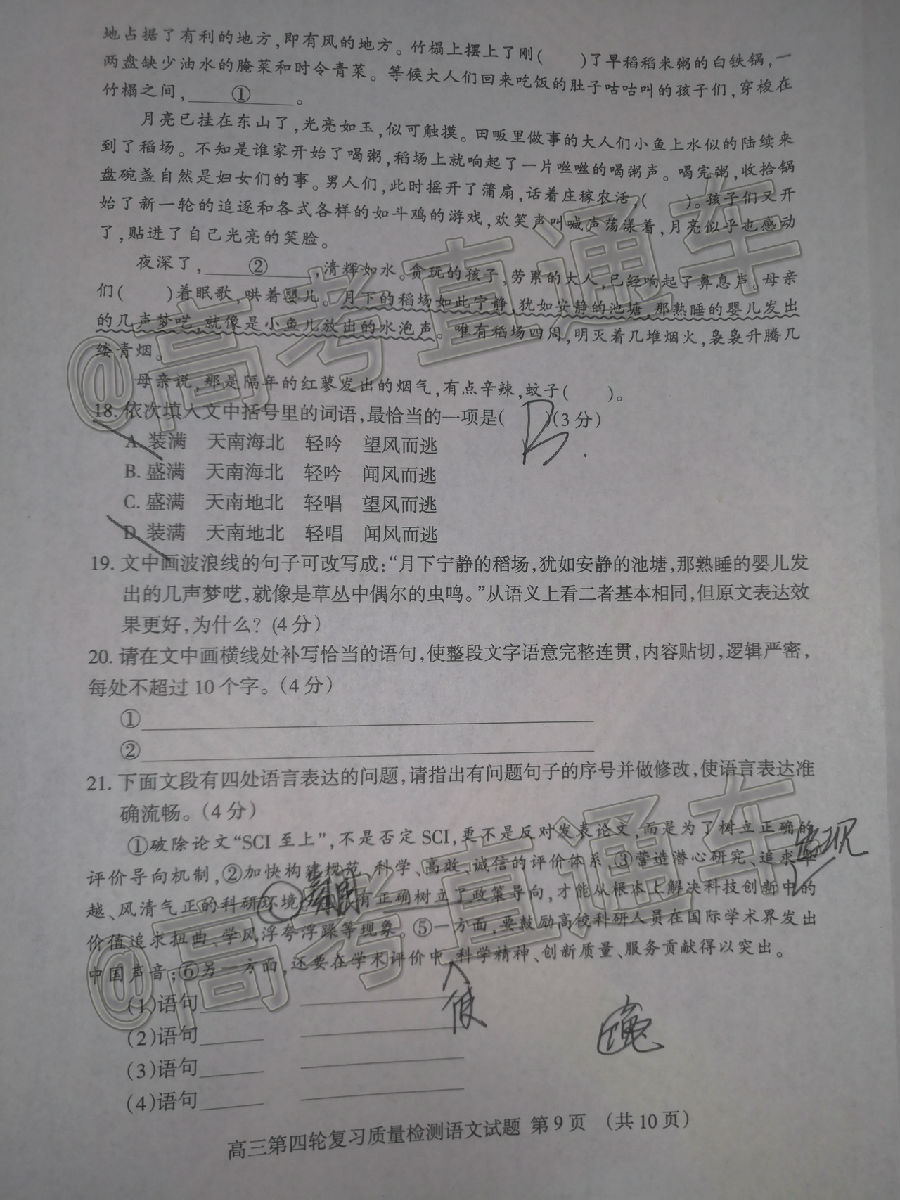 地占据了有利的地方,即有风的地方。竹榻上摆上了刚(　　)了早稻稻米粥的白铁锅,一
两盘缺少油水的腌菜和时令青菜。等候大人们回来吃饭的肚子咕咕叫的孩子们,穿梭在
竹榻之间,____①____。
月亮已挂在东山了,光亮如玉,似可触摸。田畈里做事的大人们小鱼上水似的陆续来
到了稻场。不知是谁家开始了喝粥,稻场上就响起了一片咝咝的喝粥声。喝完粥,收拾锅
盘碗盏自然是妇女们的事。男人们,此时摇开了蒲扇,话着庄稼农活(　　)。孩子们又开
始了新一轮的追逐和各式各样的如斗鸡的游戏,欢笑声叫喊声荡漾着,月亮似乎也感动
了,贴进了自己光亮的笑脸。
夜深了,____②____,清辉如水。贪玩的孩子,劳累的大人,已经响起了鼻息声。母亲
们(　　)着眠歌,哄着婴儿。月下的稻场如此宁静,犹如安静的池塘,那熟睡的婴儿发出
的几声梦呓,就像是小鱼儿放出的水泡声。唯有稻场四周,明灭着几堆烟火,袅袅升腾几
缕青烟。
母亲说,那是隔年的红蓼发出的烟气,有点辛辣,蚊子(　　)。
18. 依次填入文中括号里的词语,最恰当的一项是( B )(3分)
A. 装满　天南海北　轻吟　望风而逃
B. 盛满　天南海北　轻吟　闻风而逃
C. 盛满　天南地北　轻唱　望风而逃
D. 装满　天南地北　轻唱　闻风而逃
19. 文中画波浪线的句子可改写成:“月下宁静的稻场,犹如安静的池塘,那熟睡的婴儿发
出的几声梦呓,就像是草丛中偶尔的虫鸣。”从语义上看二者基本相同,但原文表达效
果更好,为什么? (4分)
20. 请在文中画横线处补写恰当的语句,使整段文字语意完整连贯,内容贴切,逻辑严密,
每处不超过10个字。(4分)
①
②
21. 下面文段有四处语言表达的问题,请指出有问题句子的序号并做修改,使语言表达准
确流畅。(4分)
①破除论文“SCI至上”,不是否定SCI,更不是反对发表论文,而是为了树立正确的
评价导向机制,②加快构建规范、科学、高效、诚信的评价体系,③营造潜心研究、追求卓
越、风清气正的科研环境。有正确树立了政策导向,才能从根本上解决科技创新中的
价值追求扭曲、学风浮夸浮躁等现象。⑤一方面,要鼓励高校科研人员在国际学术界发出
中国声音;⑥另一方面,还要在学术评价中,科学精神、创新质量、服务贡献得以突出。
使
(1)语句
(2)语句
(3)语句
(4)语句
高三第四轮复习质量检测语文试题 第9页 (共10页)
@高考直通车
@高考直通车